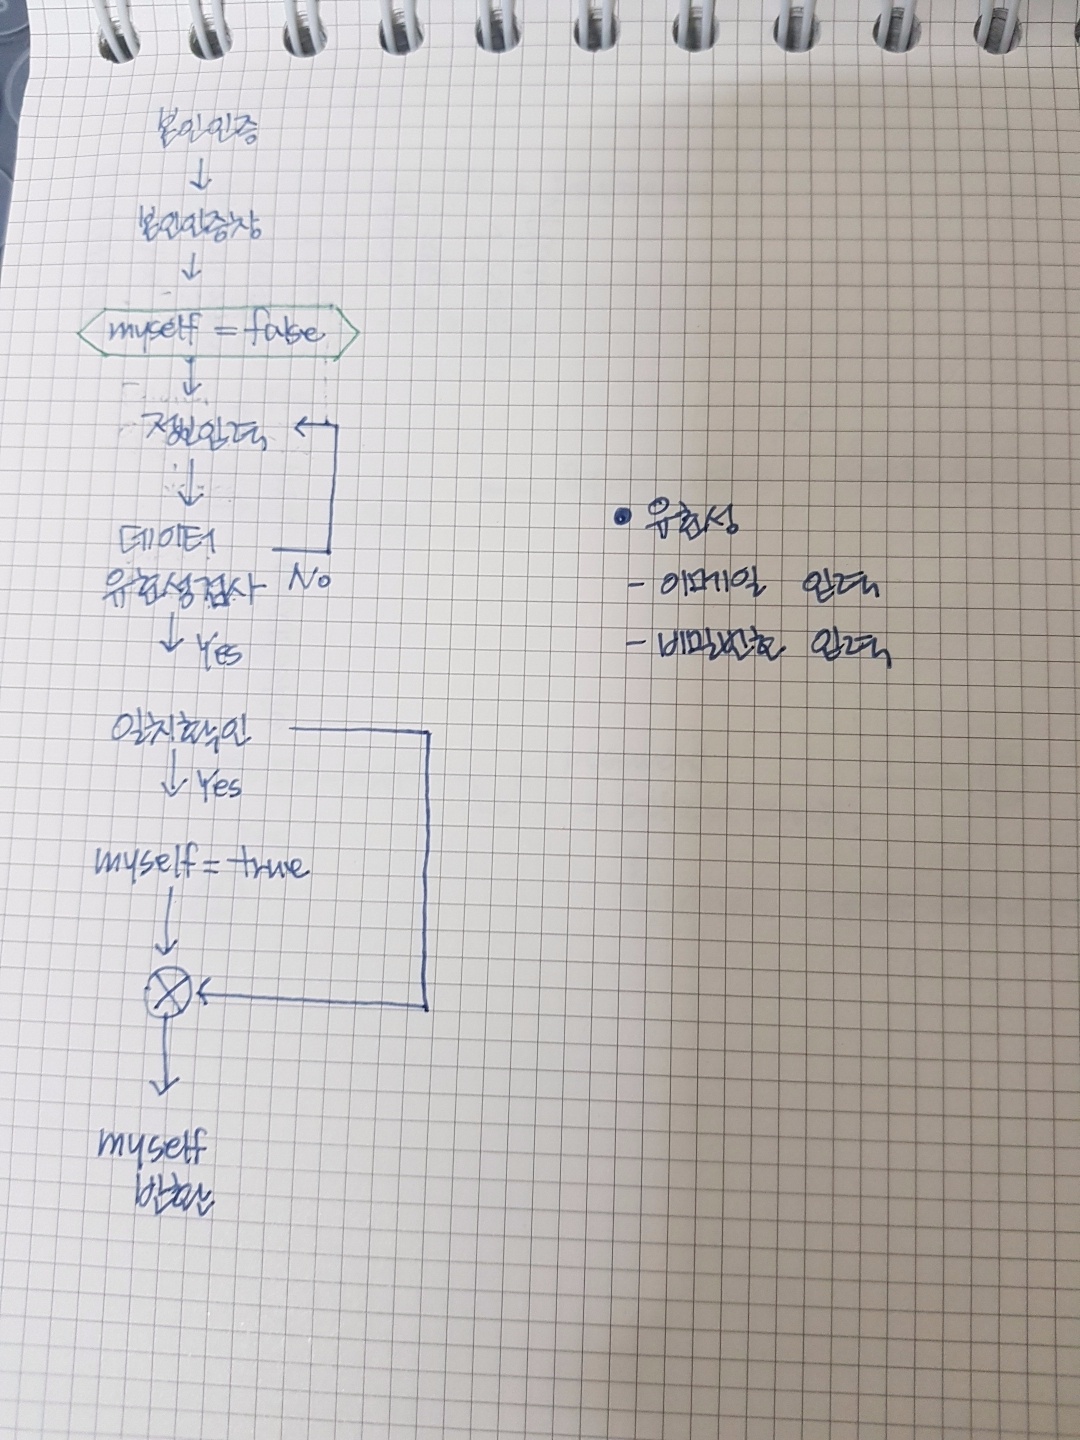 본인인증
본인인증창
myself = false
정보입력
데이터
유효성검사 No
Yes
일치확인
Yes
myself = true
myself
반환
• 유효성
- 이메일 입력
- 비밀번호 입력